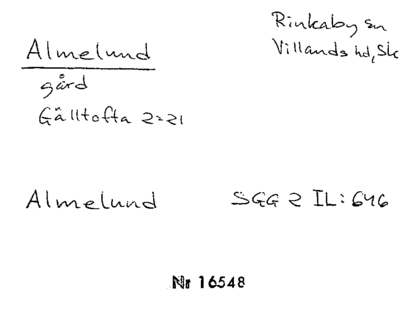 Almelund
gård
Gälltofta 2:21
Rinkaby sn
Villands hd, Sk
Almelund SGG 2 IL: 646
Nr 16548